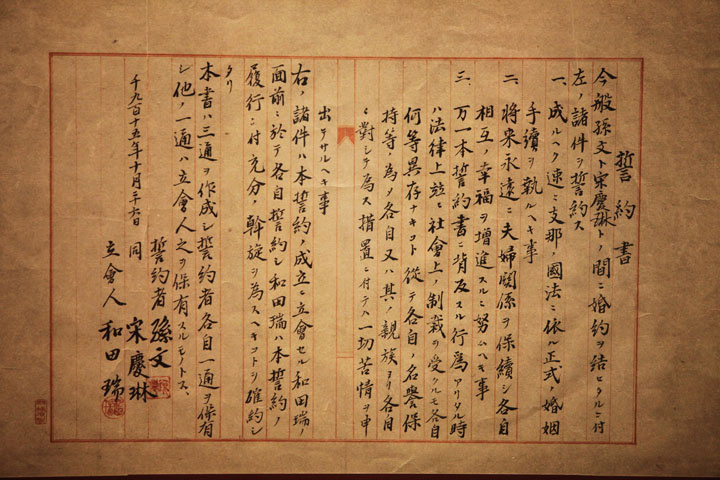 誓約書
今般孫文ト宋慶琳トノ間ニ婚約ヲ結ヒタルニ付
左ノ諸件ヲ誓約ス
一、成ルヘク速ニ支那ノ國法ニ依ル正式ノ婚姻
手續ヲ執ルヘキ事
二、将来永遠ニ夫婦関係ヲ保續シ各自
相互ノ幸福ヲ増進スルニ努ムヘキ事
三、万一本誓約書ニ背反スル行為アリタル時
ハ法律上竝ニ社會上ノ制裁ヲ受クルモ各自
何等異存ナキコト從テ各自ノ名譽保
持等ノ為メ各自又ハ其ノ親族ヨリ各自
ニ對シテ為ス措置ニ付テハ一切苦情ヲ申
出テサルヘキ事
右ノ諸件ハ本誓約ノ成立ニ立會セル和田瑞ノ
面前ニ於テ各自誓約シ和田瑞ハ本誓約ノ
履行ニ付充分ノ斡旋ヲ為スヘキコトヲ確約シ
タリ
本書ハ三通ヲ作成シ誓約者各自一通ヲ保有
シ他ノ一通ハ立會人之ヲ保有スルモノトス、
千九百十五年十月二十六日
誓約者 孫文
同 宋慶琳
立會人 和田瑞